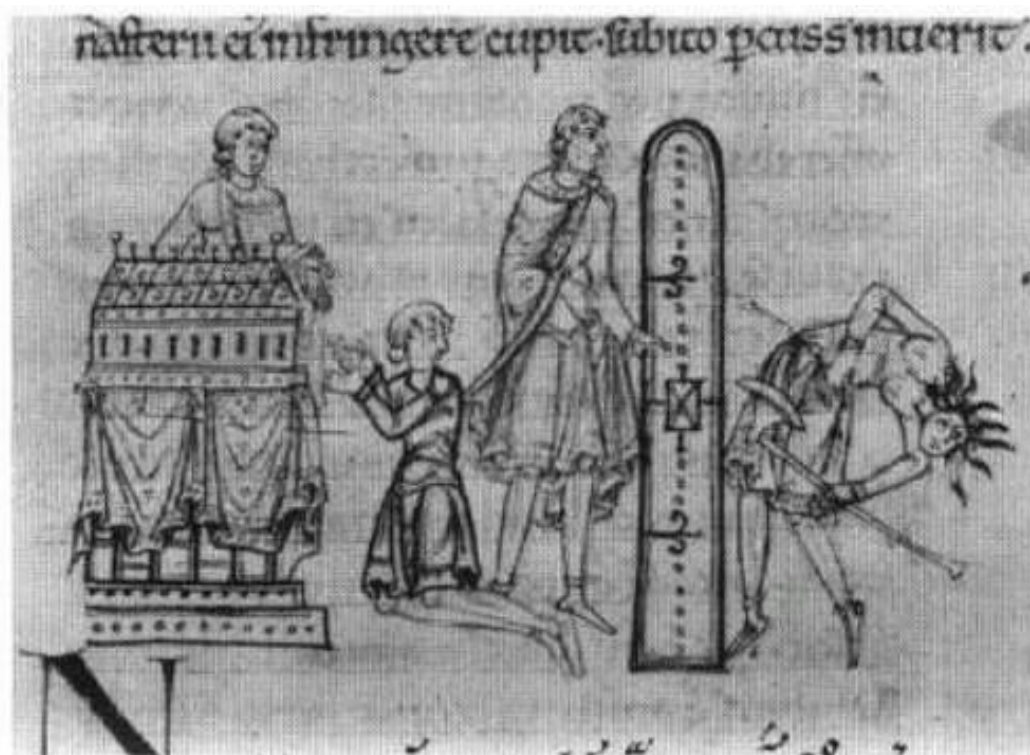 nasterii ei infringere cupit · subito pcuss intierit .